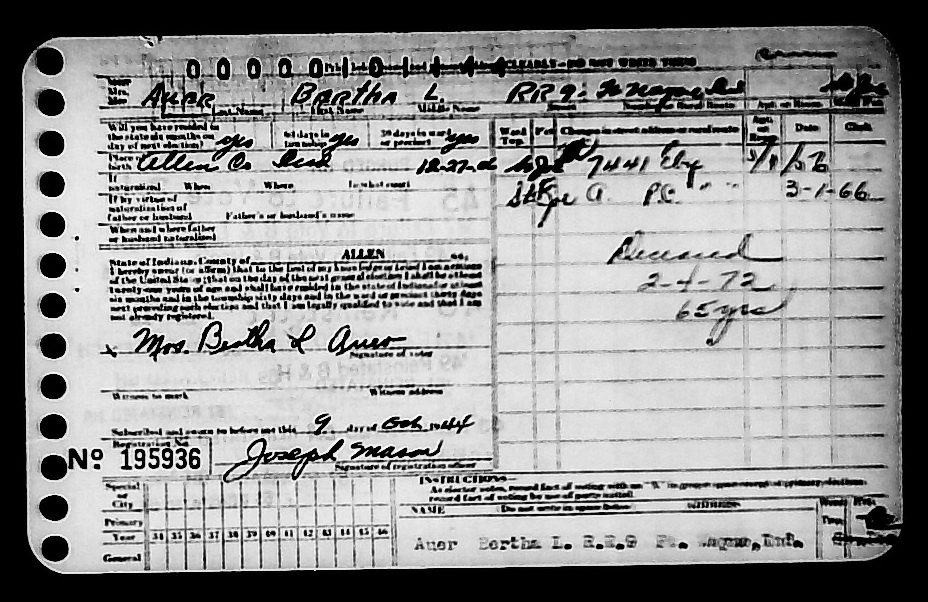 CLEARLY—DO NOT WRITE THESE
Auer Bertha L. RR 9- Ft Wayne Ind St Joe
Last Name First Name Middle Name Number or Rural Route Apt. or Room
Will you have resided in the state six months on day of next election? yes 60 days in township yes 30 days in ward or precinct yes
Ward Twp. Pct. Change in street address or rural route Apt. or Room Date Clerk
Place of birth Allen Co Ind 12-27-06
St Joe 7441 Eby 5/1/56
If naturalized When Where In what court
St Joe A. P.C. " " 3-1-66
If by virtue of naturalization of father or husband Father's or husband's name
When and where father or husband naturalized
State of Indiana, County of ALLEN ss.
I hereby swear (or affirm) that to the best of my knowledge or belief I am a citizen
of the United States; that on the day of the next general election I shall be at least
twenty-one years of age and shall have resided in the state of Indiana for at least
six months and in the township sixty days and in the ward or precinct thirty days
next preceding such election and that I am legally qualified to vote and that I am
not already registered.
Deceased
2-4-72
65 yrs
x Mrs. Bertha L Auer
Signature of voter
Witness to mark Witness address
Subscribed and sworn to before me this 9 day of Oct 1944
Registration No.
No 195936 Joseph Mason
Signature of registration officer
INSTRUCTIONS
Special or City
As elector votes, record fact of voting with an "X" in proper space except at primary elections
record fact of voting by use of party initial.
Primary
NAME (Do not write in space below) ADDRESS
Year 34 35 36 37 38 39 40 41 42 43 44 45 46
General
Auer Bertha L. R.R.9 Ft. Wayne, Ind.